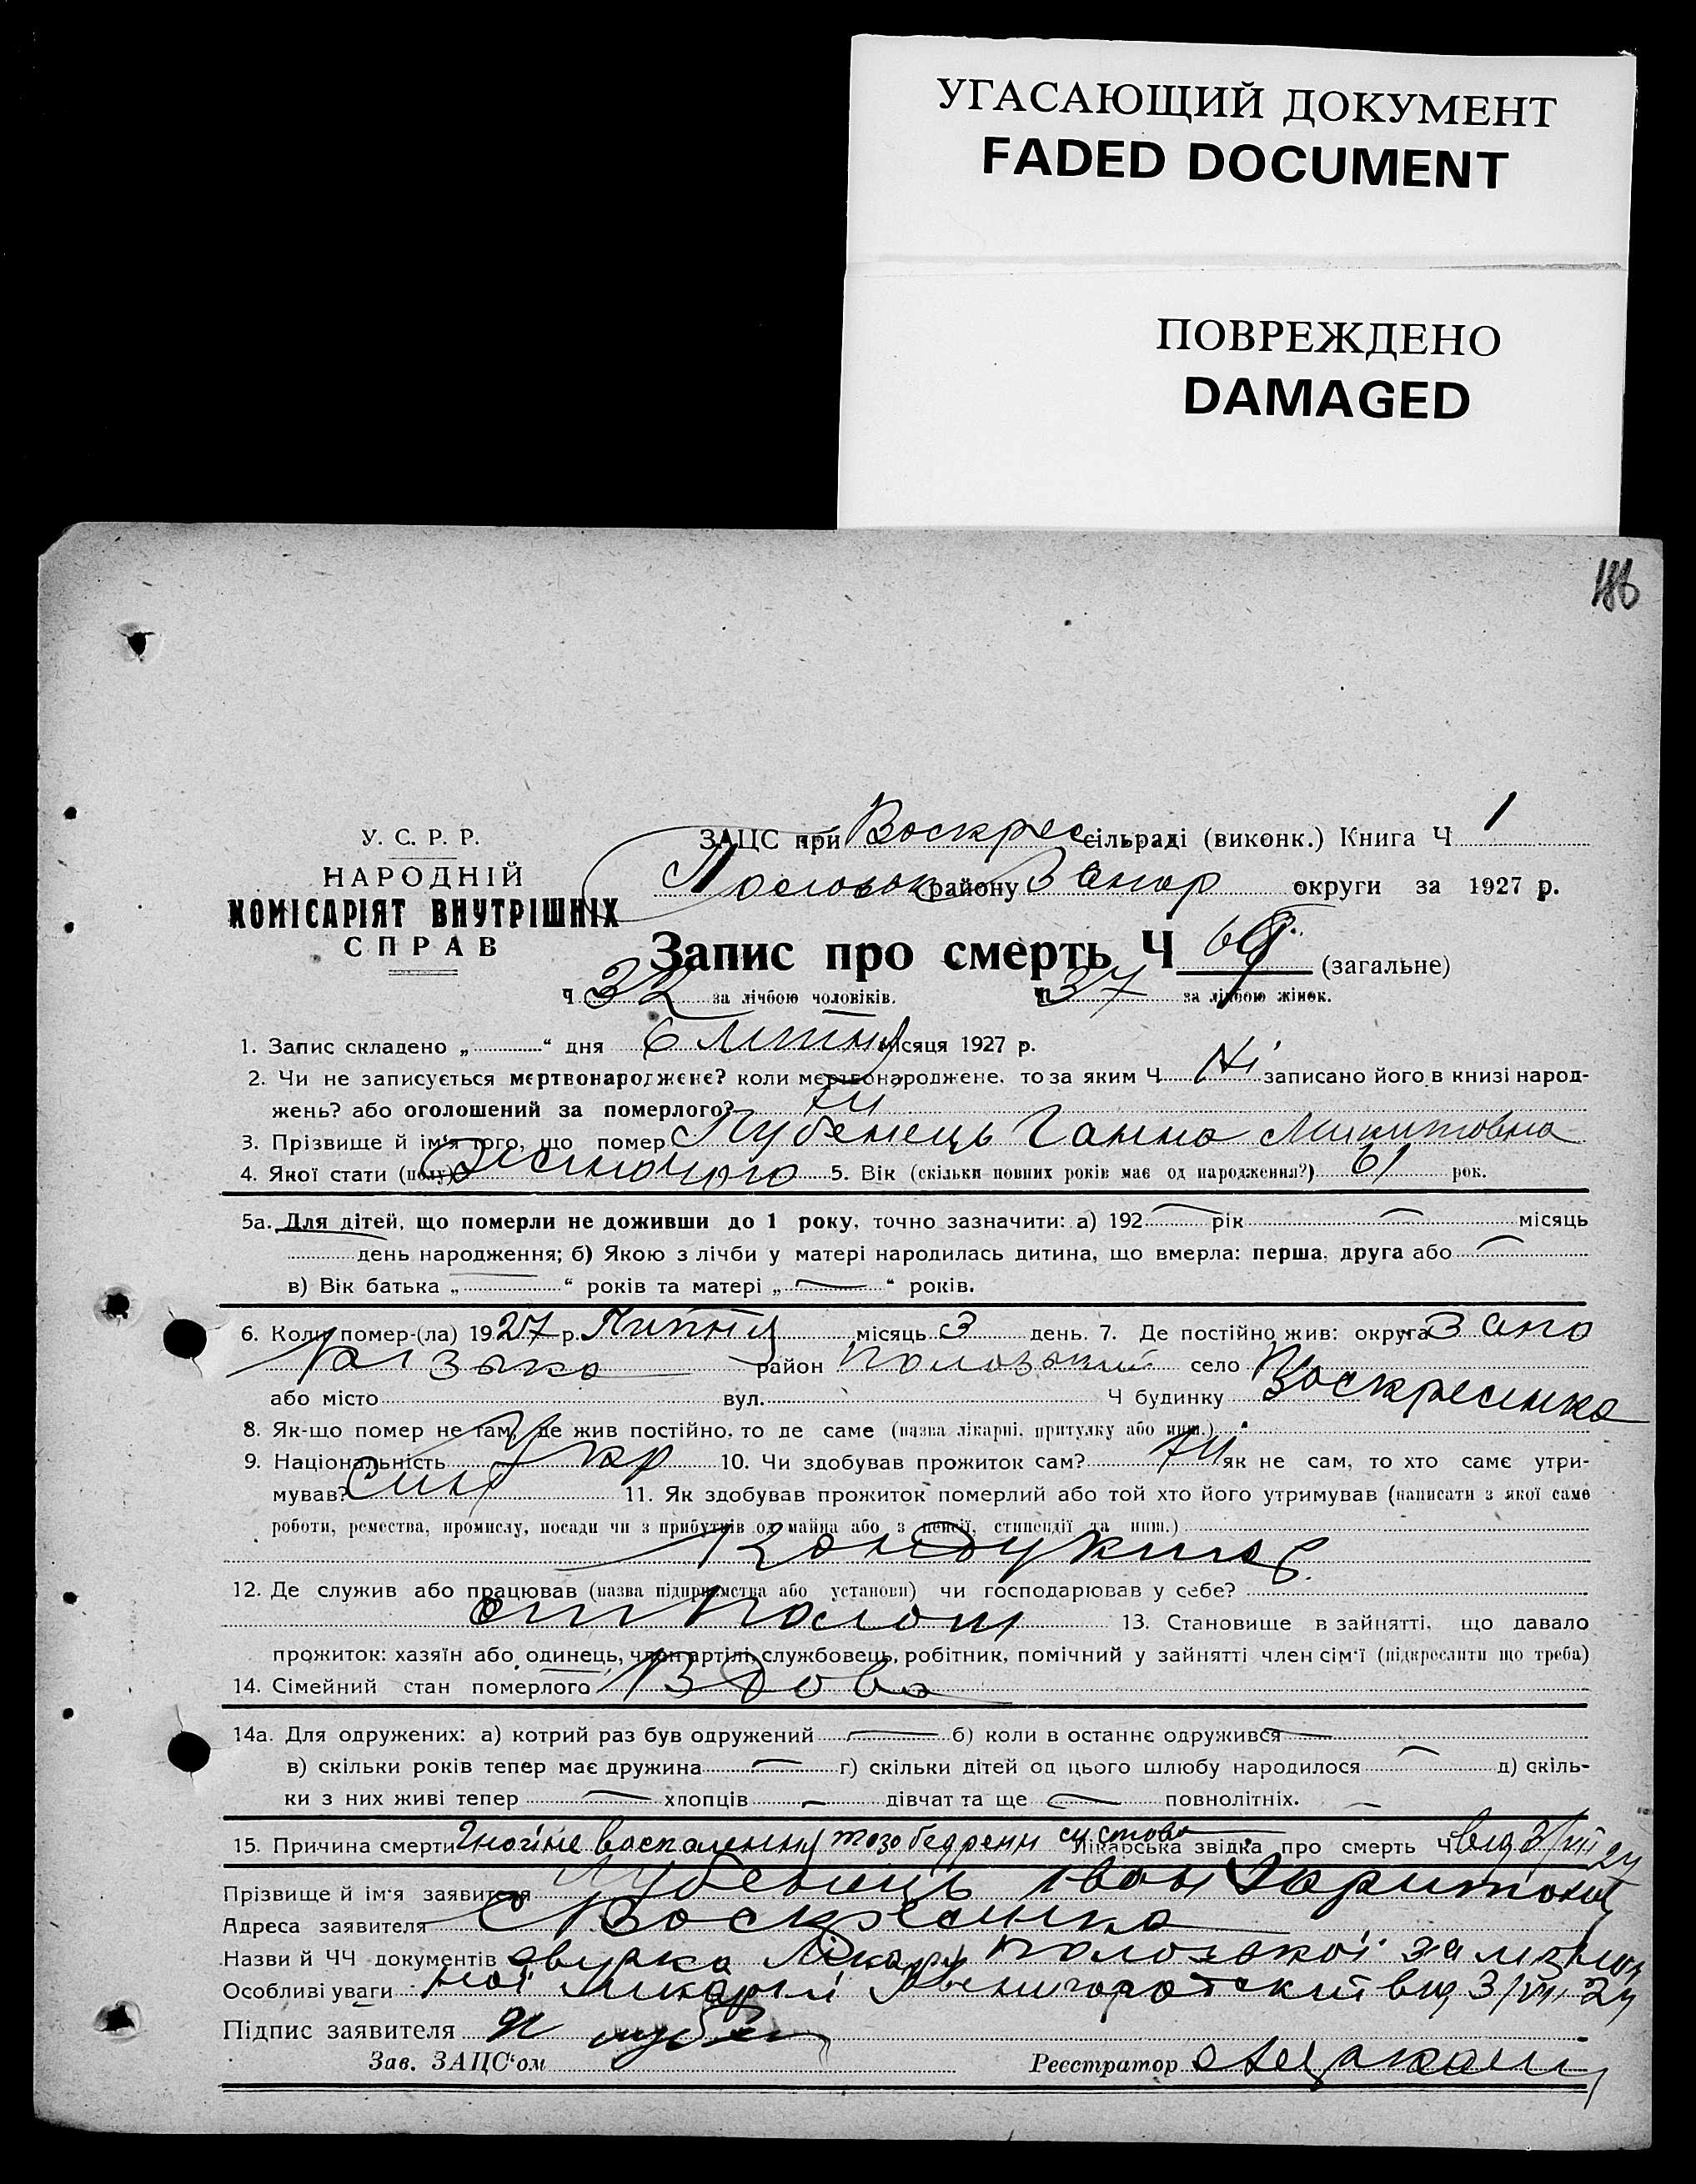 УГАСАЮЩИЙ ДОКУМЕНТ
FADED DOCUMENT
ПОВРЕЖДЕНО
DAMAGED
У. С. Р. Р.
НАРОДНІЙ
КОМІСАРІЯТ ВНУТРІШНІХ
СПРАВ
ЗАЦС при Воскрес сільраді (виконк.) Книга Ч 1
району Запор округи за 1927 р.
Запис про смерть Ч 69 (загальне)
Ч 32 за лічбою чоловіків. Ч 37 за лічбою жінок.
1. Запис складено „ “ дня 6 липня місяця 1927 р.
2. Чи не записується мертвонароджене? коли мертвонароджене, то за яким Ч Ні записано його в книзі народ-
жень? або оголошений за померлого? Ні
3. Прізвище й ім'я того, що помер Лубенець Ганна Микитовна
4. Якої стати (полу) 5. Вік (скільки повних років має од народження?) 61 рок.
5а. Для дітей, що померли не доживши до 1 року, точно зазначити: а) 192 рік місяць
день народження; б) Якою з лічби у матері народилась дитина, що вмерла: перша, друга або
в) Вік батька „ “ років та матері „ “ років.
6. Коли помер-(ла) 1927 р. Липня місяць 3 день. 7. Де постійно жив: округа Запо
різька район Пологський село Воскресенка
або місто вул. Ч будинку
8. Як-що помер не там, де жив постійно, то де саме (назва лікарні, притулку або инш.)
9. Національність Укр 10. Чи здобував прожиток сам? Ні як не сам, то хто саме утри-
мував? Син 11. Як здобував прожиток померлий або той хто його утримував (написати з якої саме
роботи, ремества, промислу, посади чи з прибутків од майна або з пенсії, стипендії та инш.)
Кондуктор
12. Де служив або працював (назва підприємства або установи) чи господарював у себе?
ст Пологи 13. Становище в зайнятті, що давало
прожиток: хазяїн або одинець, член артілі, службовець, робітник, помічний у зайнятті член сім'ї (підкреслити що треба)
14. Сімейний стан померлого Вдова
14а. Для одружених: а) котрий раз був одружений б) коли в останнє одружився
в) скільки років тепер має дружина г) скільки дітей од цього шлюбу народилося д) скіль-
ки з них живі тепер хлопців дівчат та ще повнолітніх.
15. Причина смерти Гногіне воспалення тозо бедренн сустова Лікарська звідка про смерть Ч від 3/VII 27
Прізвище й ім'я заявителя Лубенець Іван Харитонов
Адреса заявителя С Воскресенка
Назви й ЧЧ документів Лікаря Пологзької залізнич
Особливі уваги ної лікарні від 3/VII, 27
Підпис заявителя
Зав. ЗАЦС‘ом Реєстратор